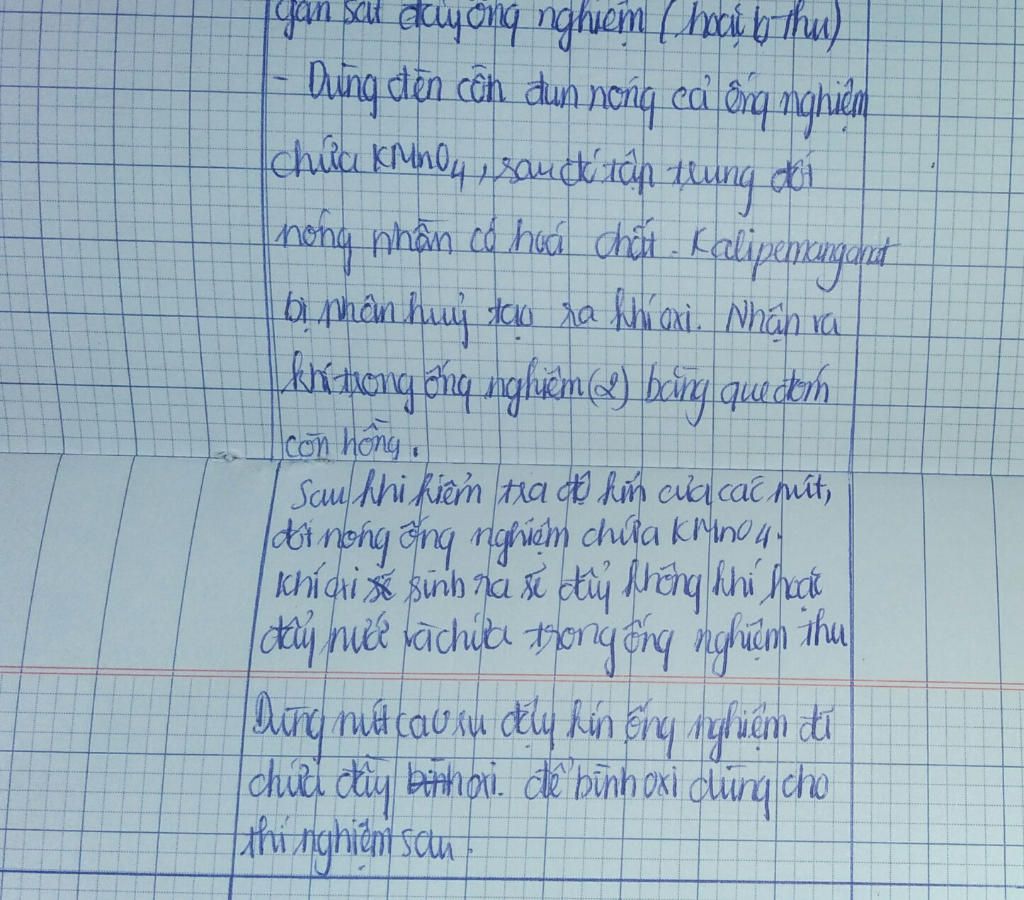 gần sát đáy ống nghiệm (hoặc b thu)
- Dùng đèn cồn đun nóng cả ống nghiệm
chứa KMnO4, sau đó tập trung đốt
nóng phần có hoá chất. Kalipemanganat
bị phân huỷ tạo ra khí oxi. Nhận ra
khí trong ống nghiệm (2) bằng que đóm
còn hồng.
Sau khi kiểm tra độ kín của các nút,
đốt nóng ống nghiệm chứa KMnO4.
Khí oxi sẽ sinh ra sẽ đẩy không khí hoặc
đẩy nước và chứa trong ống nghiệm thu
Dùng nút cao su đậy kín ống nghiệm đã
chứa đầy bình oxi. để bình oxi dùng cho
thí nghiệm sau.